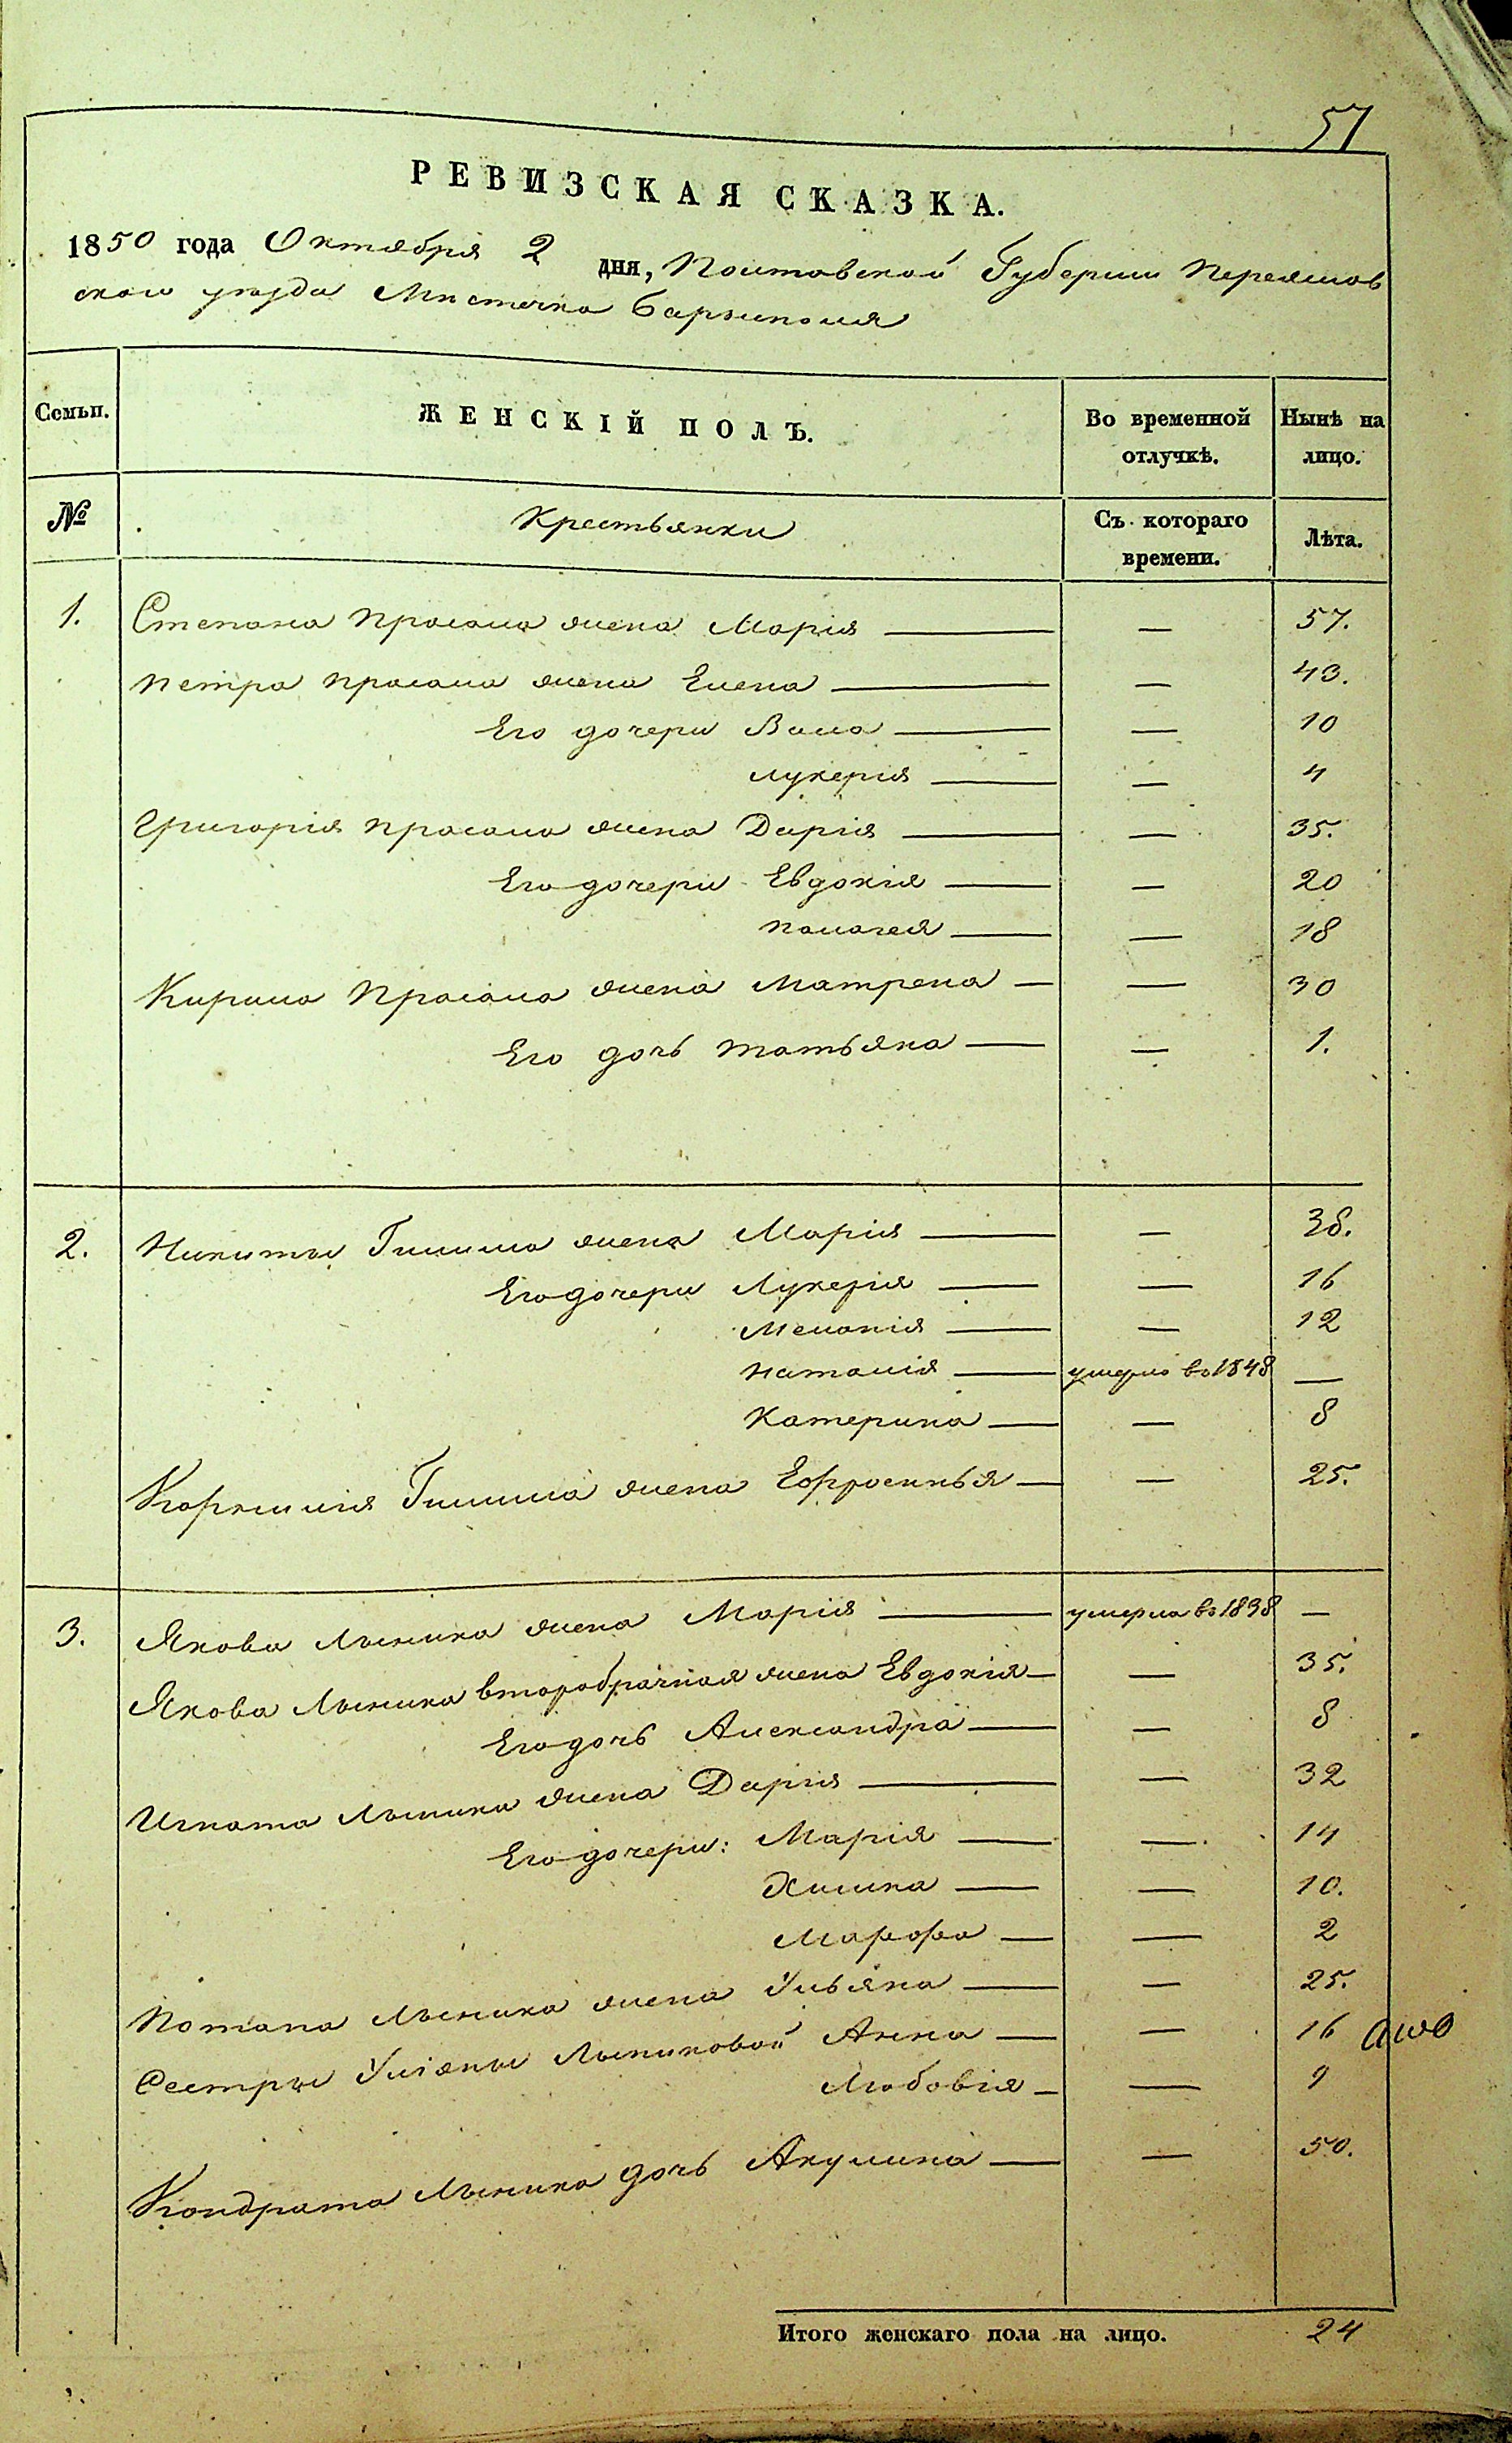 57
РЕВИЗСКАЯ СКАЗКА.
1850 года Октября 2 дня, Полтавской Губернии Переяслов
скаго уезда Мистечка Барышполя
Семьи. ЖЕНСКІЙ ПОЛЪ. Во временной отлучкѣ. Нынѣ на лицо.
№ Крестьянки Съ котораго времени. Лѣта.
1. Степана Прасала жена Марія — — 57.
Петра Прасала жена Елена — — 43.
Его дочери Васа — — 10
Лукерія — — 4
Григорія Прасала жена Дарія — — 35.
Его дочери Евдокія — — 20
Палагея — — 18
Кирила Прасала жена Матрена — — 30
Его дочь Татьяна — — 1.
2. Никиты жена Марія — — 38.
Его дочери Лукерія — — 16
Меланія — — 12
Наталія — умерла въ 1848 —
Катерина — — 8
Корнилія жена Ефросинья — — 25.
3. Якова Лысика жена Марія — умерла въ 1838 —
Якова Лысика второбрачная жена Евдокія — — 35.
Его дочь Александра — — 8
Игната Лысика жена Дарія — — 32
Его дочери: Марія — — 14
Химка — — 10.
Марфа — — 2
Потапа Лысика жена Ульяна — — 25.
Сестры Уліяны Лысиковой Анна — — 16
Любовія — — 9
Кондрата Лысика дочь Акулина — — 50.
Итого женскаго пола на лицо. 24